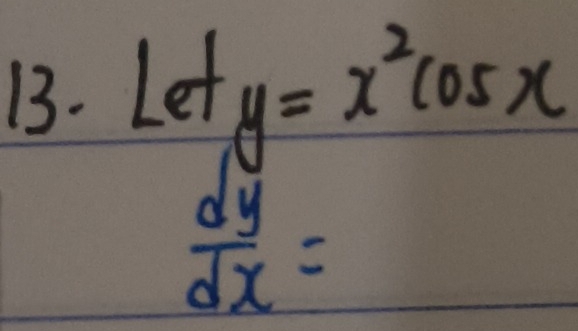 13. Let y = x² cos x
dy/dx =